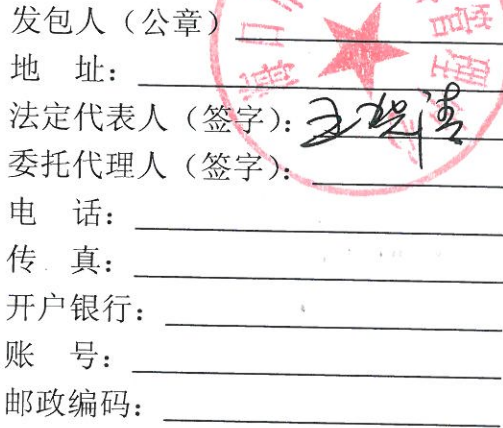 发包人（公章）
地 址：
法定代表人（签字）：
委托代理人（签字）：
电 话：
传 真：
开户银行：
账 号：
邮政编码：